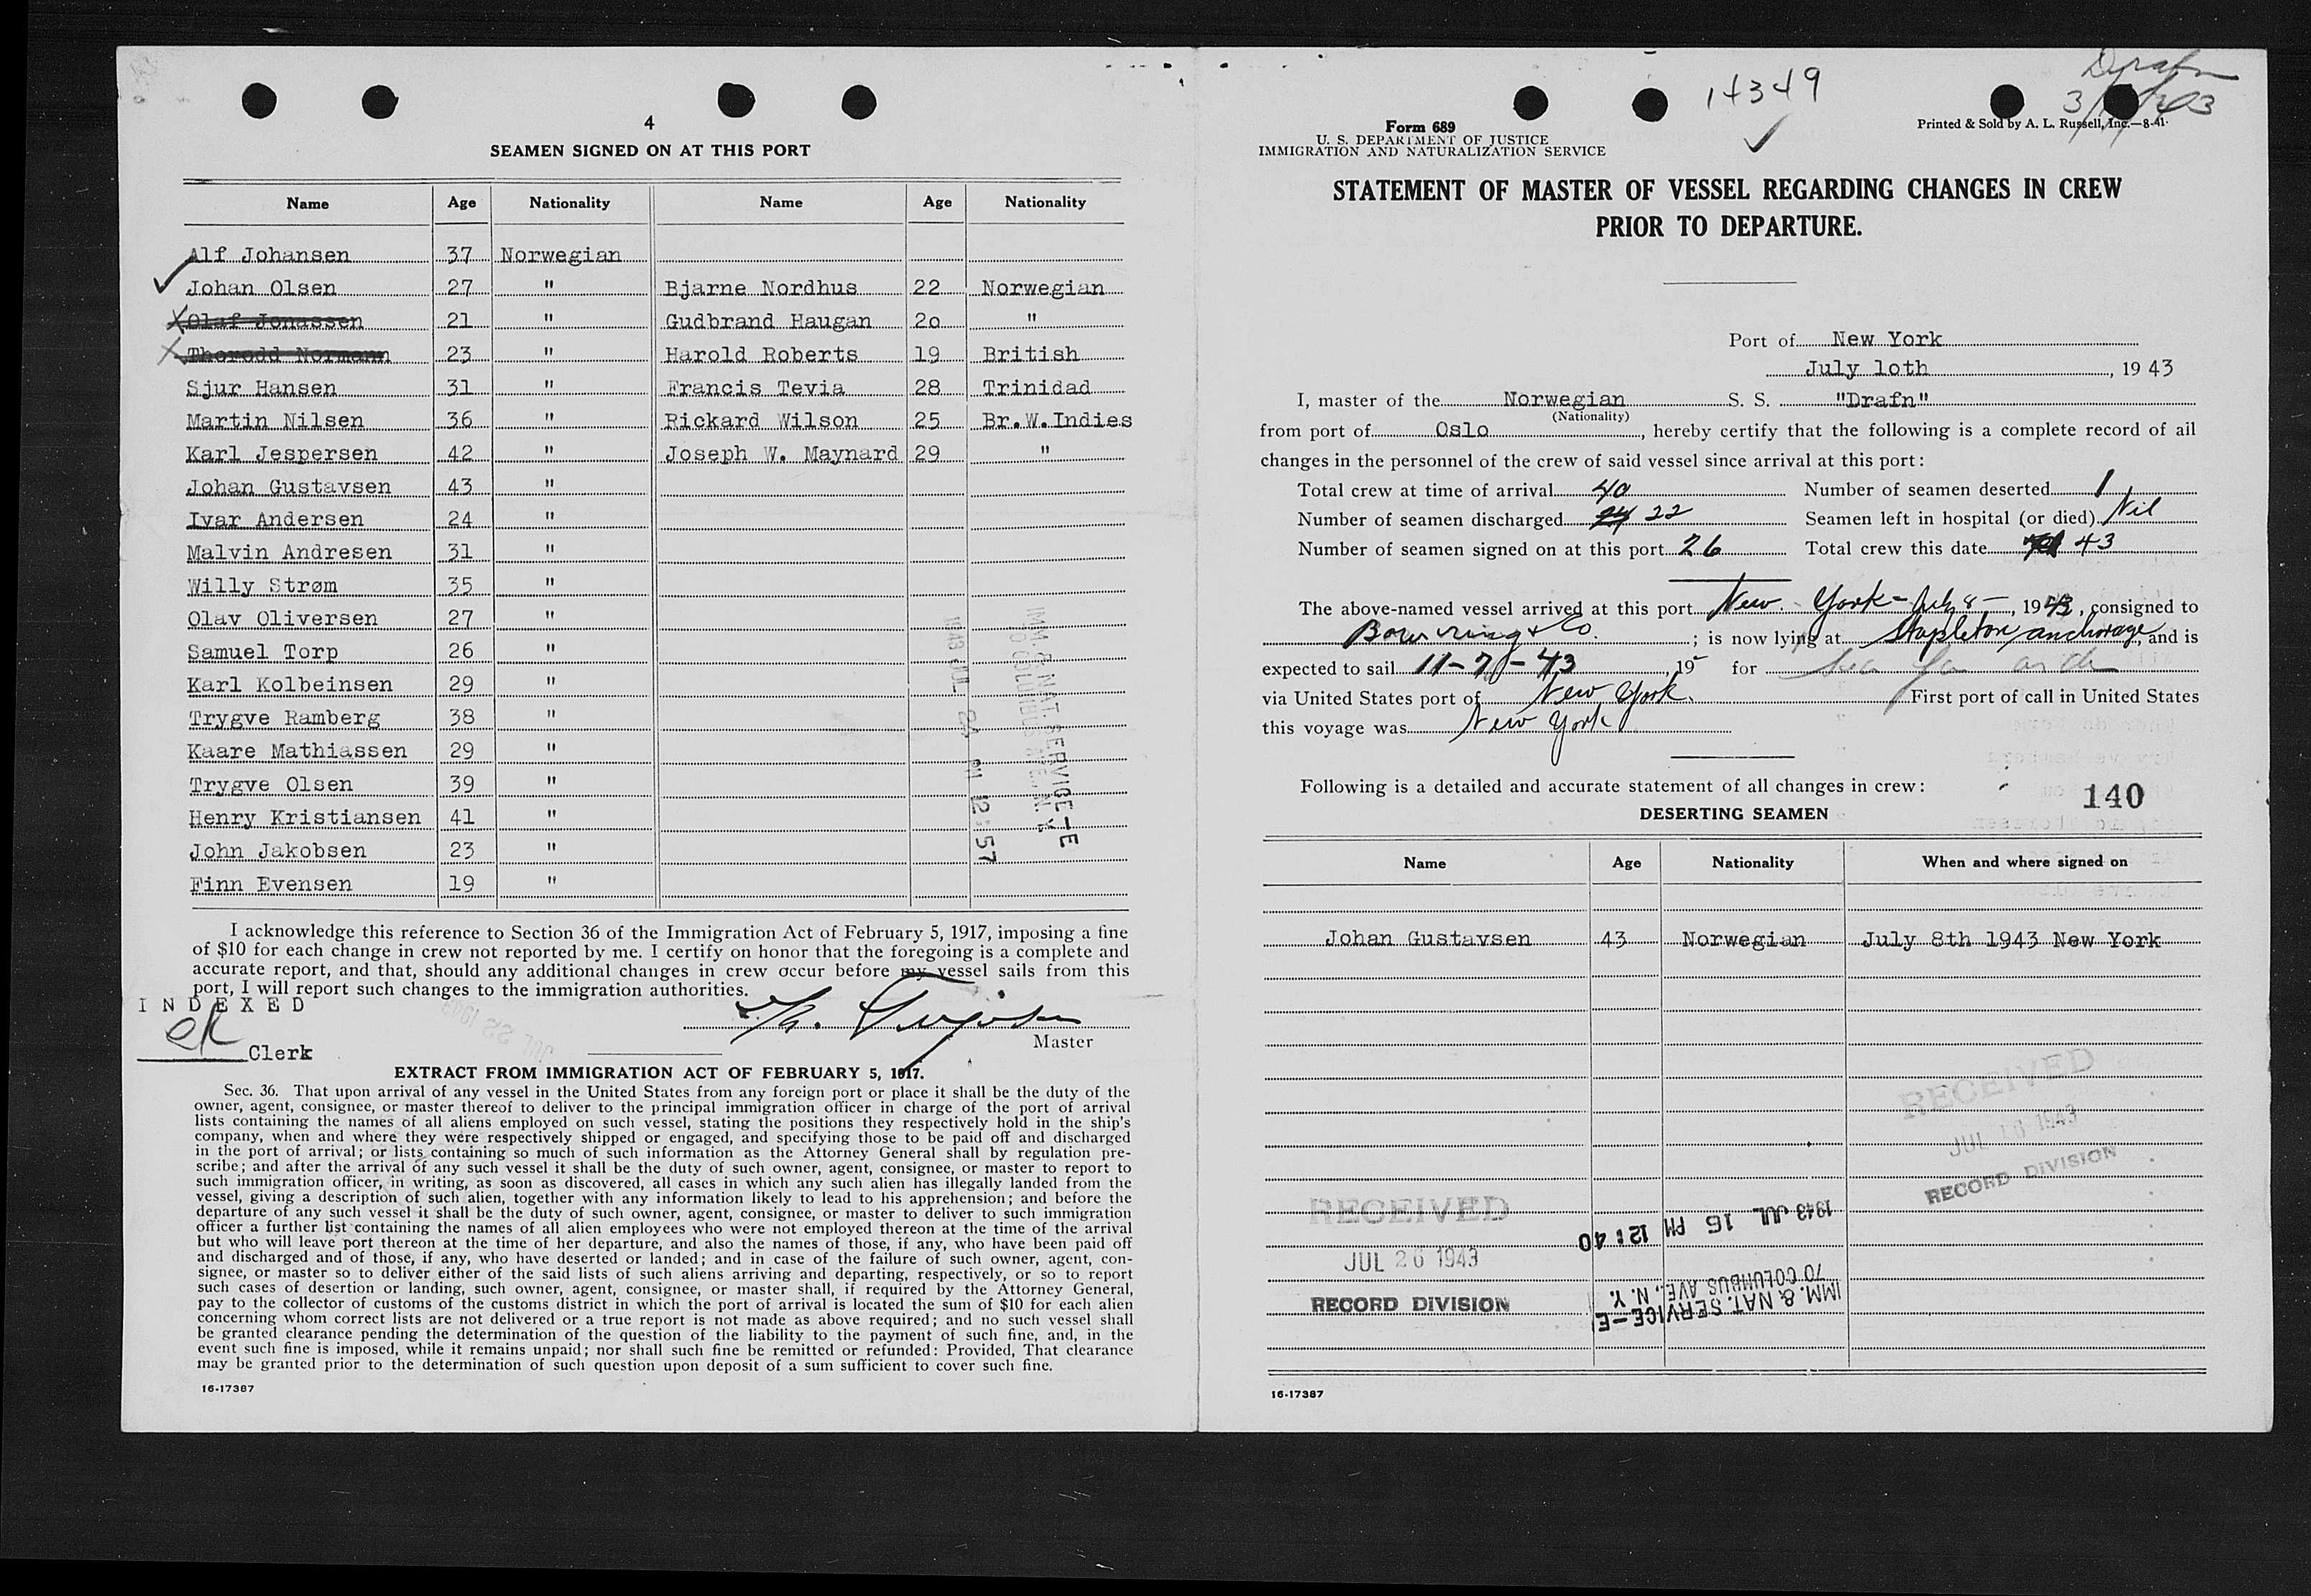 4
SEAMEN SIGNED ON AT THIS PORT
Name Age Nationality Name Age Nationality
Alf Johansen 37 Norwegian
Johan Olsen 27 " Bjarne Nordhus 22 Norwegian
Olaf Jonassen 21 " Gudbrand Haugan 2o "
Thorodd Normann 23 " Harold Roberts 19 British
Sjur Hansen 31 " Francis Tevia 28 Trinidad
Martin Nilsen 36 " Rickard Wilson 25 Br.W.Indies
Karl Jespersen 42 " Joseph W. Maynard 29 "
Johan Gustavsen 43 "
Ivar Andersen 24 "
Malvin Andresen 31 "
Willy Strøm 35 "
Olav Oliversen 27 "
Samuel Torp 26 "
Karl Kolbeinsen 29 "
Trygve Ramberg 38 "
Kaare Mathiassen 29 "
Trygve Olsen 39 "
Henry Kristiansen 41 "
John Jakobsen 23 "
Finn Evensen 19 "
IMM. & NAT. SERVICE—E
70 COLUMBUS AVE., N.Y.
1943 JUL 12:57
I acknowledge this reference to Section 36 of the Immigration Act of February 5, 1917, imposing a fine
of $10 for each change in crew not reported by me. I certify on honor that the foregoing is a complete and
accurate report, and that, should any additional changes in crew occur before my vessel sails from this
port, I will report such changes to the immigration authorities.
INDEXED
Clerk
JUL 22 1943
Master
EXTRACT FROM IMMIGRATION ACT OF FEBRUARY 5, 1917.
Sec. 36. That upon arrival of any vessel in the United States from any foreign port or place it shall be the duty of the
owner, agent, consignee, or master thereof to deliver to the principal immigration officer in charge of the port of arrival
lists containing the names of all aliens employed on such vessel, stating the positions they respectively hold in the ship's
company, when and where they were respectively shipped or engaged, and specifying those to be paid off and discharged
in the port of arrival; or lists containing so much of such information as the Attorney General shall by regulation pre-
scribe; and after the arrival of any such vessel it shall be the duty of such owner, agent, consignee, or master to report to
such immigration officer, in writing, as soon as discovered, all cases in which any such alien has illegally landed from the
vessel, giving a description of such alien, together with any information likely to lead to his apprehension; and before the
departure of any such vessel it shall be the duty of such owner, agent, consignee, or master to deliver to such immigration
officer a further list containing the names of all alien employees who were not employed thereon at the time of the arrival
but who will leave port thereon at the time of her departure, and also the names of those, if any, who have been paid off
and discharged and of those, if any, who have deserted or landed; and in case of the failure of such owner, agent, con-
signee, or master so to deliver either of the said lists of such aliens arriving and departing, respectively, or so to report
such cases of desertion or landing, such owner, agent, consignee, or master shall, if required by the Attorney General,
pay to the collector of customs of the customs district in which the port of arrival is located the sum of $10 for each alien
concerning whom correct lists are not delivered or a true report is not made as above required; and no such vessel shall
be granted clearance pending the determination of the question of the liability to the payment of such fine, and, in the
event such fine is imposed, while it remains unpaid; nor shall such fine be remitted or refunded: Provided, That clearance
may be granted prior to the determination of such question upon deposit of a sum sufficient to cover such fine.
16-17387
14349
Drafn
Form 689
U. S. DEPARTMENT OF JUSTICE
IMMIGRATION AND NATURALIZATION SERVICE
Printed & Sold by A. L. Russell, Inc.—8-41-
STATEMENT OF MASTER OF VESSEL REGARDING CHANGES IN CREW
PRIOR TO DEPARTURE.
Port of New York
July loth, 1943
I, master of the Norwegian S. S. "Drafn"
(Nationality)
from port of Oslo, hereby certify that the following is a complete record of all
changes in the personnel of the crew of said vessel since arrival at this port:
Total crew at time of arrival 40 Number of seamen deserted 1
Number of seamen discharged 24 22 Seamen left in hospital (or died) Nil
Number of seamen signed on at this port 26 Total crew this date 43
The above-named vessel arrived at this port New York - July 8 -, 1943, consigned to
Bowring & Co.; is now lying at Stapleton anchorage, and is
expected to sail 11-7-43, 19 for
via United States port of New York. First port of call in United States
this voyage was New York
Following is a detailed and accurate statement of all changes in crew:
140
DESERTING SEAMEN
Name Age Nationality When and where signed on
Johan Gustavsen 43 Norwegian July 8th 1943 New York
RECEIVED
JUL 16 1943
RECORD DIVISION
RECEIVED
JUL 26 1943
RECORD DIVISION
1943 JUL 15 PM 12:40
IMM. & NAT. SERVICE—E
70 COLUMBUS AVE., N. Y.
16-17387